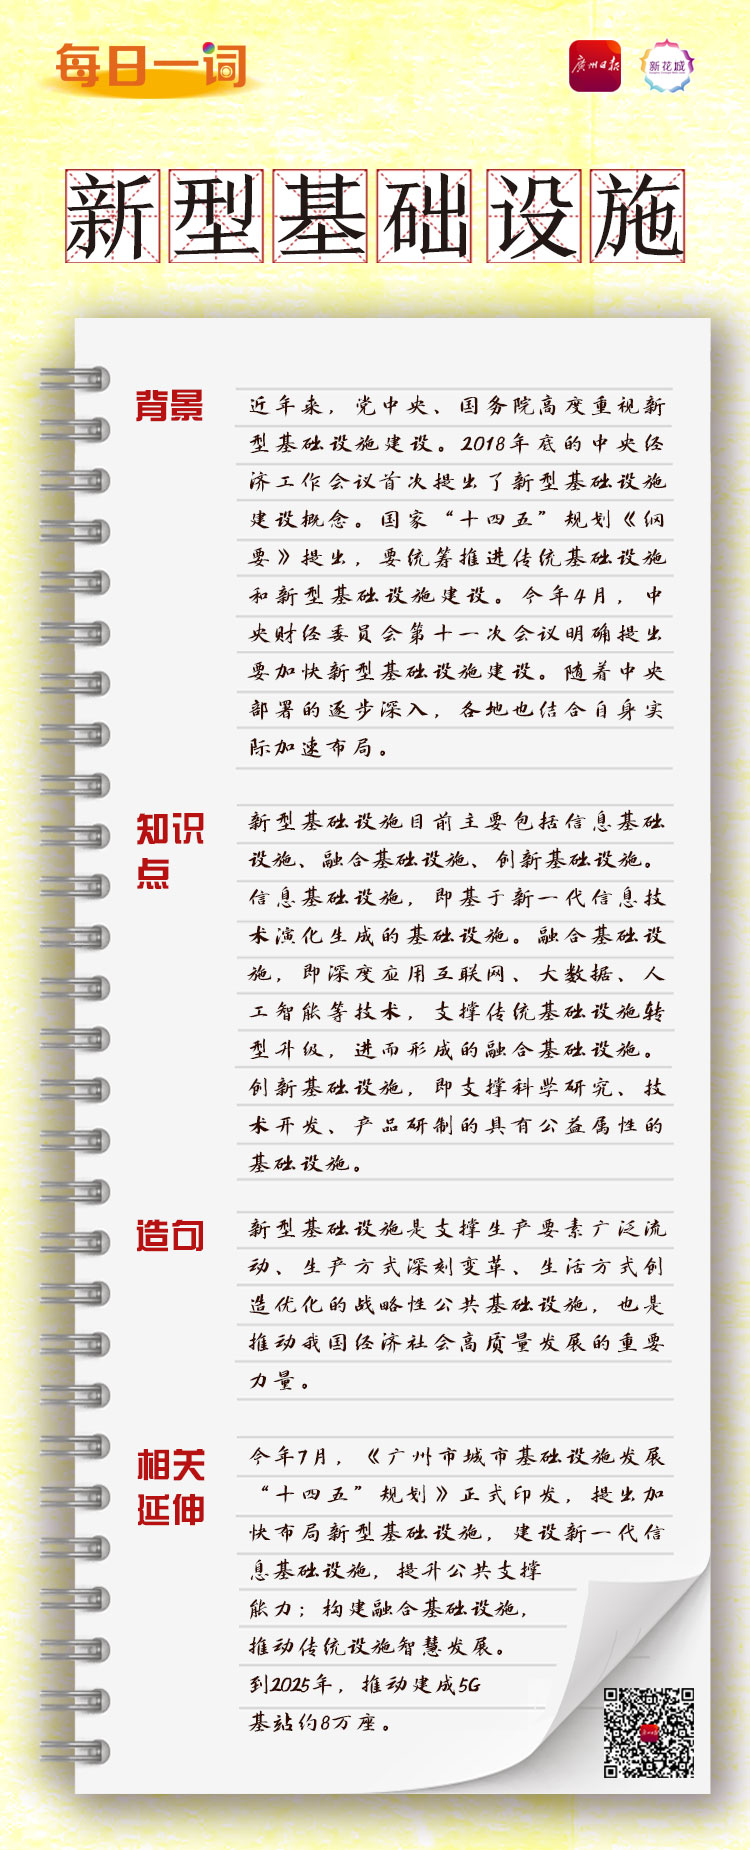 每日一词
广州日报
新花城
新型基础设施
背景
近年来，党中央、国务院高度重视新
型基础设施建设。2018年底的中央经
济工作会议首次提出了新型基础设施
建设概念。国家“十四五”规划《纲
要》提出，要统筹推进传统基础设施
和新型基础设施建设。今年4月，中
央财经委员会第十一次会议明确提出
要加快新型基础设施建设。随着中央
部署的逐步深入，各地也结合自身实
际加速布局。
知识
点
新型基础设施目前主要包括信息基础
设施、融合基础设施、创新基础设施。
信息基础设施，即基于新一代信息技
术演化生成的基础设施。融合基础设
施，即深度应用互联网、大数据、人
工智能等技术，支撑传统基础设施转
型升级，进而形成的融合基础设施。
创新基础设施，即支撑科学研究、技
术开发、产品研制的具有公益属性的
基础设施。
造句
新型基础设施是支撑生产要素广泛流
动、生产方式深刻变革、生活方式创
造优化的战略性公共基础设施，也是
推动我国经济社会高质量发展的重要
力量。
相关
延伸
今年7月，《广州市城市基础设施发展
“十四五”规划》正式印发，提出加
快布局新型基础设施，建设新一代信
息基础设施，提升公共支撑
能力；构建融合基础设施，
推动传统设施智慧发展。
到2025年，推动建成5G
基站约8万座。